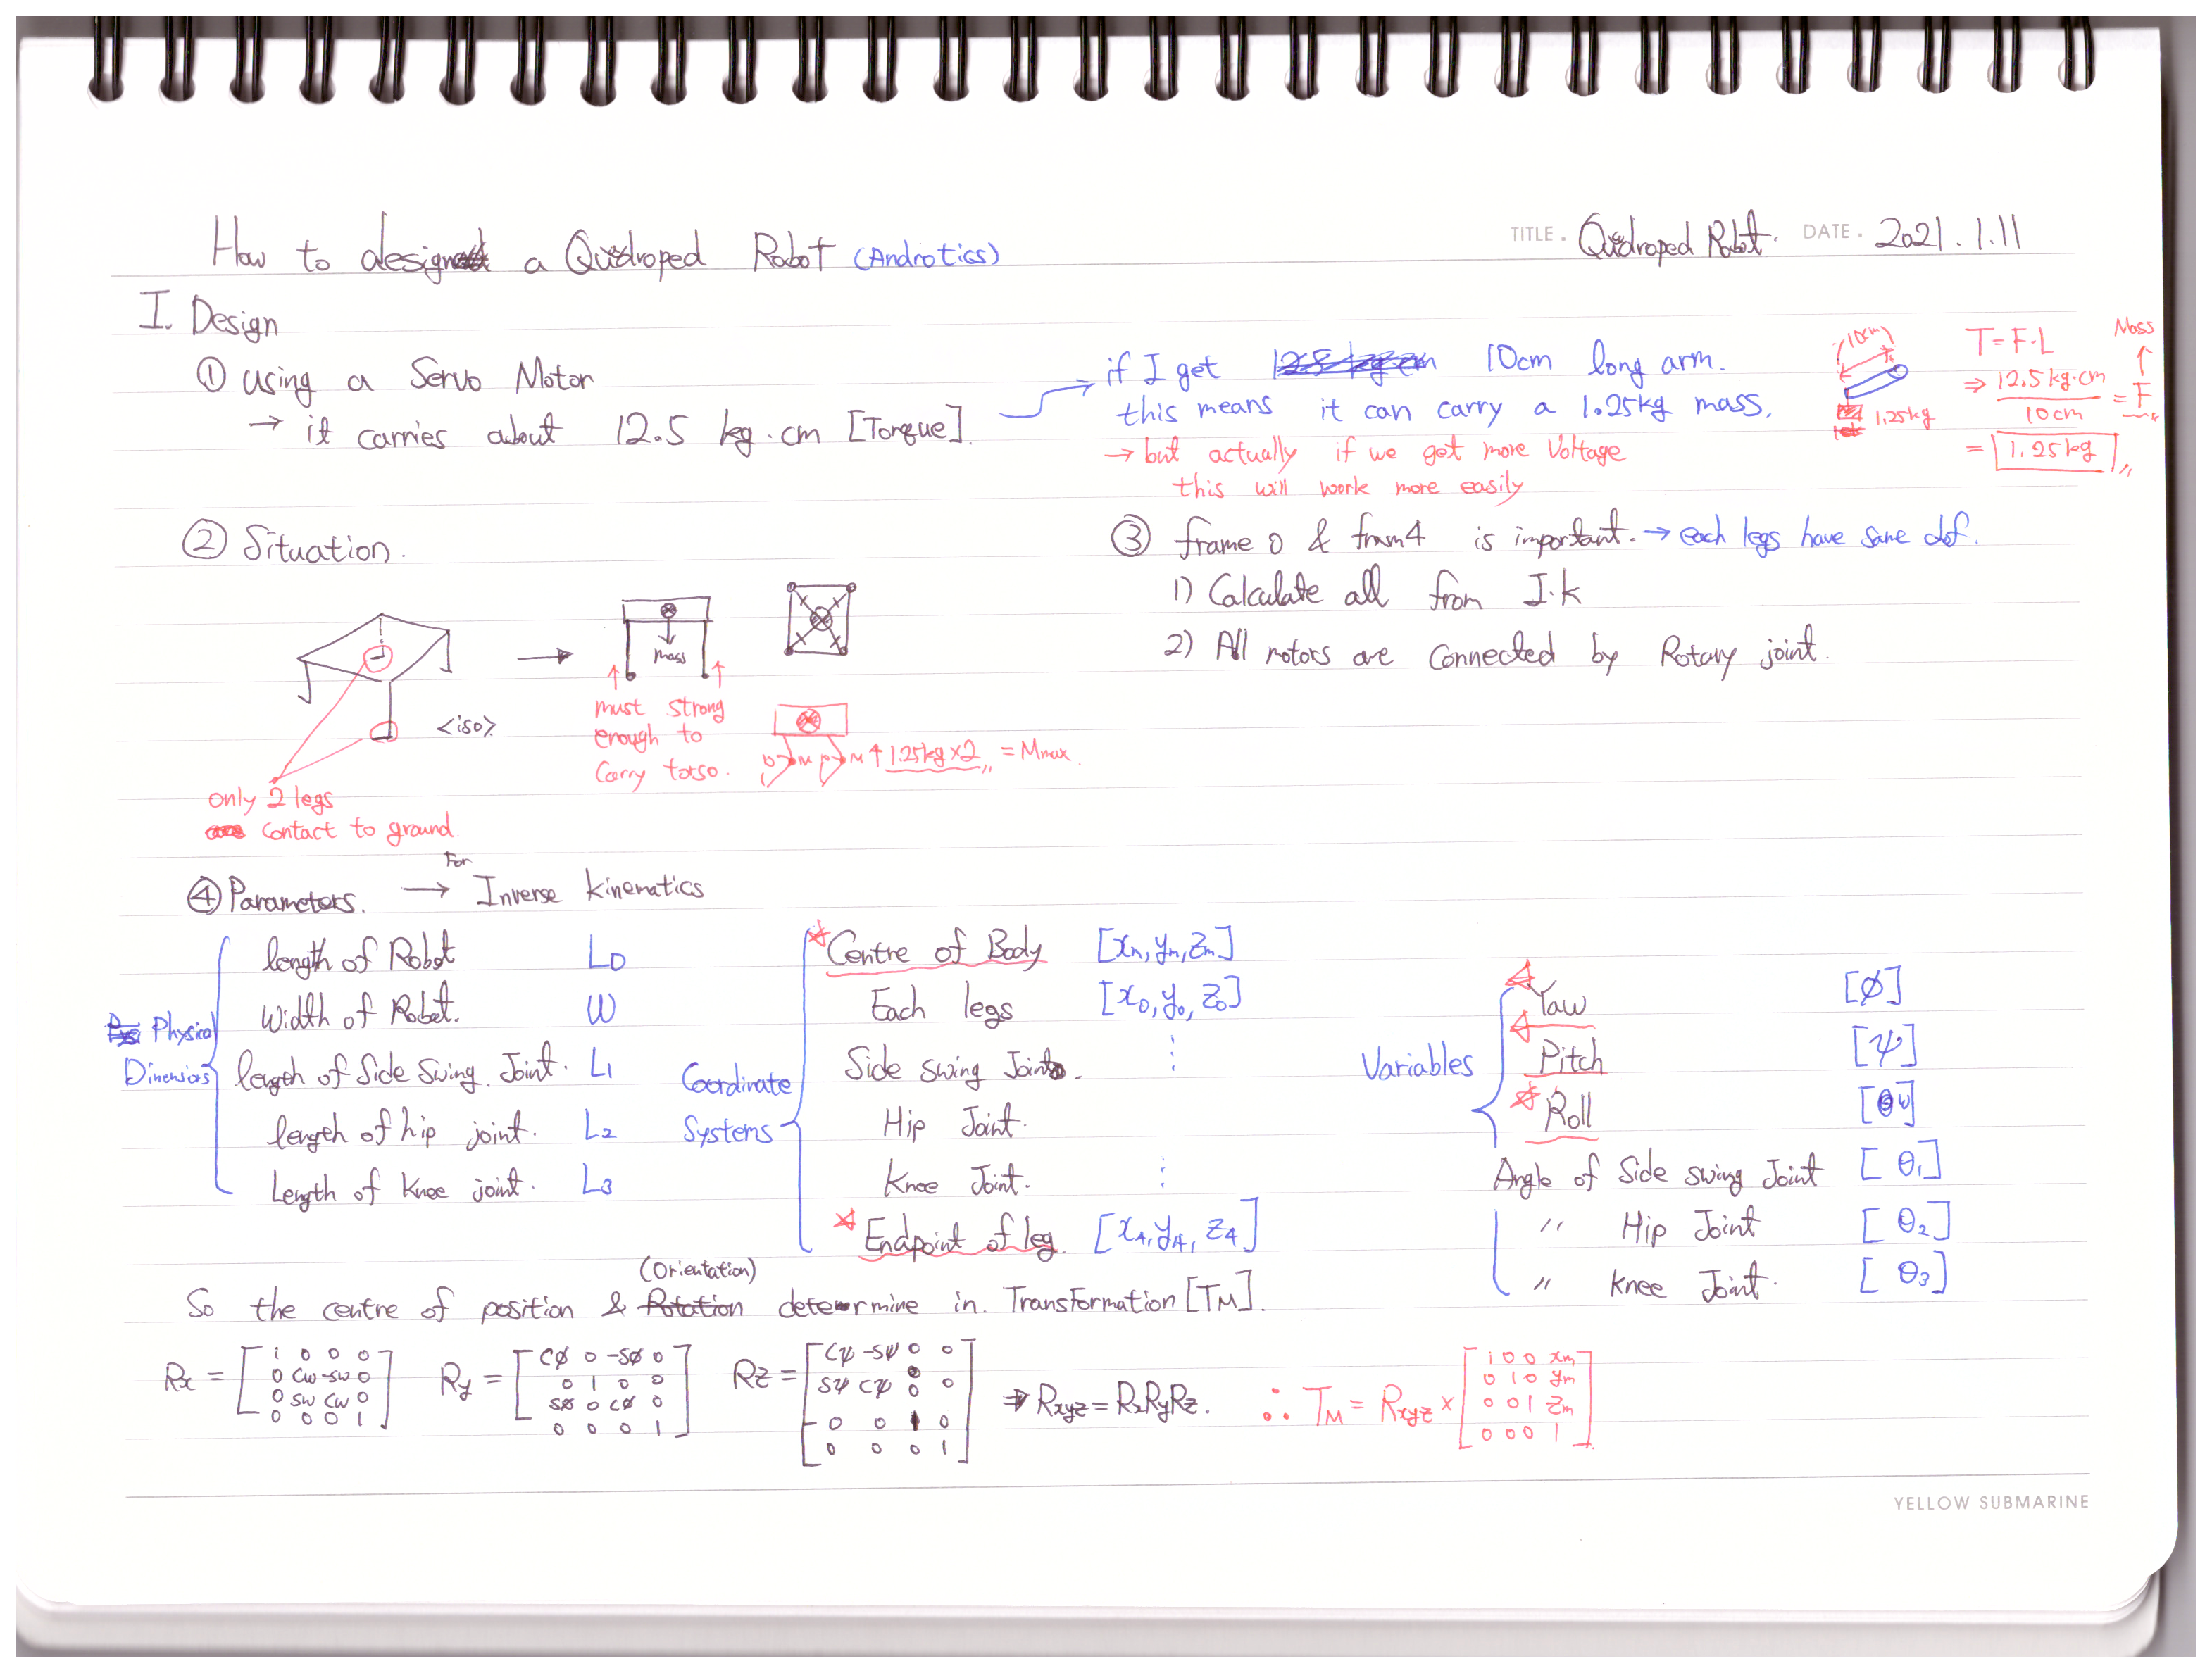 TITLE. Quidroped Robot. DATE. 2021.1.11
How to design a Quidroped Robot (Androtics)
I. Design
① using a Servo Motor
→ it carries about 12.5 kg.cm [Torque].
if I get 10cm long arm.
this means it can carry a 1.25kg mass.
→ but actually if we get more Voltage
this will work more easily
10cm
1.25kg
T=F·L
Mass
⇒ 12.5kg·cm / 10cm = F
= 1.25kg
② Situation.
<iso>
only 2 legs
contact to ground.
mass
must strong
enough to
Carry torso.
M M ↑ 1.25kg×2 = Mmax.
③ frame 0 & fram4 is important. → each legs have same dof.
1) Calculate all from I.k
2) All motors are Connected by Rotary joint.
④ Parameters. → For Inverse kinematics
Physical
Dimensions
length of Robot L0
Width of Robot. W
length of Side Swing. Joint. L1
length of hip joint. L2
Length of Knee joint. L3
Coordinate
Systems
Centre of Body [xm, ym, zm]
Each legs [x0, y0, z0]
Side Swing Joint.
Hip Joint.
Knee Joint.
Endpoint of leg. [x4, y4, z4]
Variables
Yaw [ø]
Pitch [ψ]
Roll [w]
Angle of Side swing Joint [θ1]
〃 Hip Joint [θ2]
〃 Knee Joint. [θ3]
So the centre of position & Rotation (Orientation) determine in. Transformation [TM].
Rx = [1 0 0 0
0 cw -sw 0
0 sw cw 0
0 0 0 1]
Ry = [cø 0 -sø 0
0 1 0 0
sø 0 cø 0
0 0 0 1]
Rz = [cψ -sψ 0 0
sψ cψ 0 0
0 0 1 0
0 0 0 1]
⇒ Rxyz = RxRyRz.
∴ TM = Rxyz × [1 0 0 xm
0 1 0 ym
0 0 1 zm
0 0 0 1]
YELLOW SUBMARINE